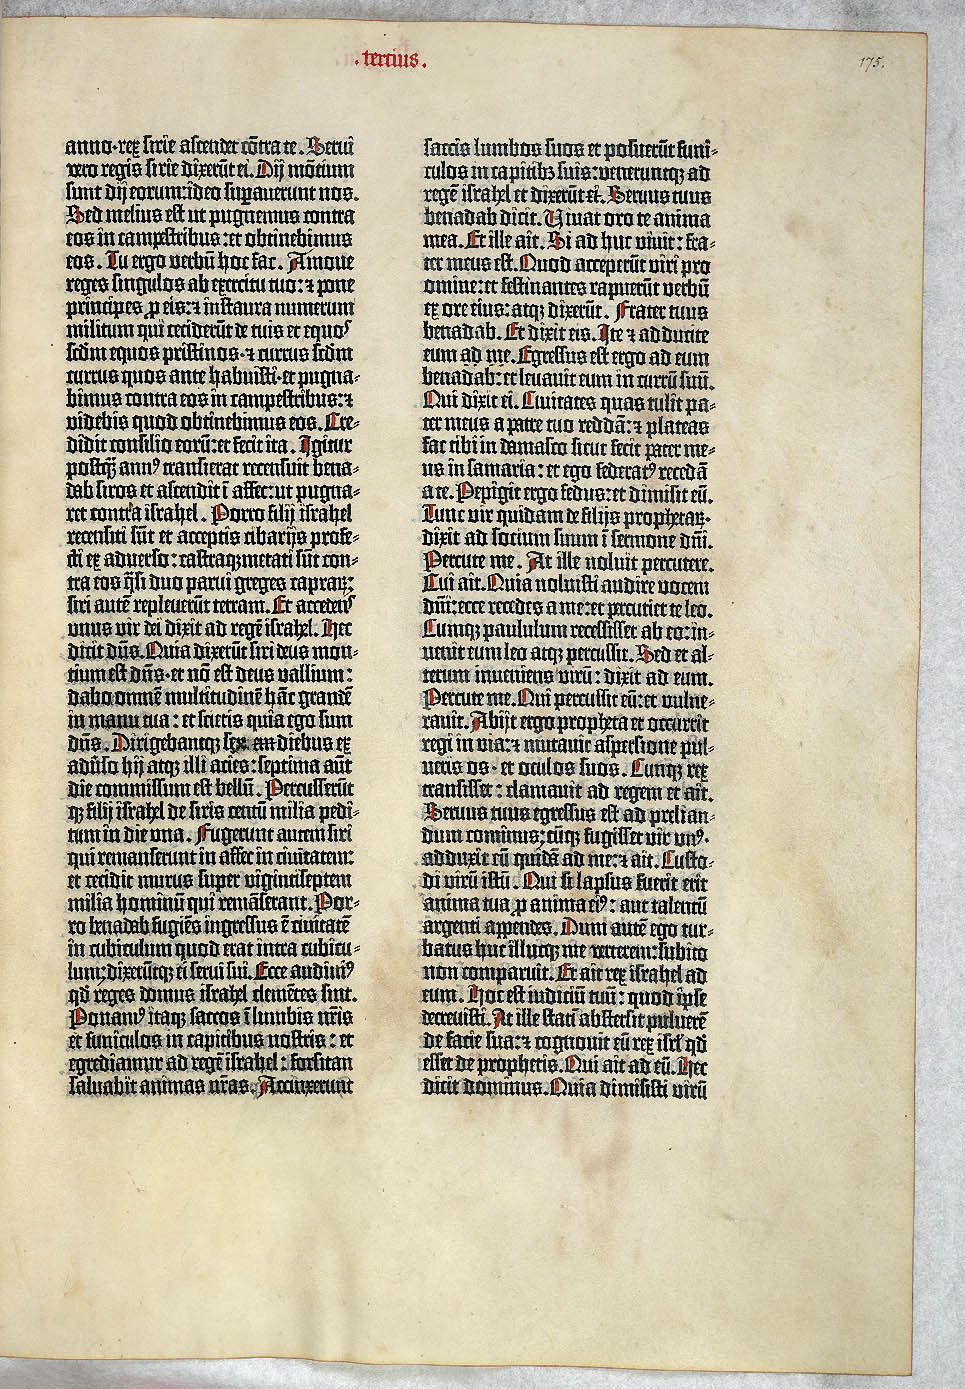 .tercius.
175.
anno·rex sirie ascendet cōtra te. Serui
vero regis sirie dixerūt ei. Dij mōtium
sunt dij eorum:ideo suꝑauerunt nos.
Sed melius est ut pugnemus contra
eos in campestribus:et obtinebimus
eos. Tu ergo verbū hoc fac. Amoue
reges singulos ab exercitu tuo:⁊ pone
principes ꝓ eis:⁊ instaura numerum
militum qui ceciderūt de tuis et equos
scdm equos pristinos·⁊ currus scdm
currus quos ante habuisti·et pugna-
bimus contra eos in campestribus:⁊
videbis quod obtinebimus eos. Cre-
didit consilio eorū:et fecit ita. Igitur
postqȝ annꝰ transierat recensuit bena-
dab siros et ascendit ī affec:ut pugna-
ret contra israhel. Porro filij israhel
recensiti sūt et acceptis cibarijs profe-
cti ex aduerso:castraqȝ metati sūt con-
tra eos q̄si duo parui greges capraꝝ:
siri autē repleuerūt terram. Et accedens
vnus vir dei dixit ad regē israhel. Hec
dicit dn̄s. Quia dixerūt siri deus mon-
tium est dn̄s·et nō est deus vallium:
dabo omnē multitudinē hāc grandē
in manu tua:et scietis quia ego sum
dn̄s. Dirigebantqȝ sex diebus ex
aduerso hij atqȝ illi acies:septima aūt
die commissum est bellū. Percusserūt
qȝ filij israhel de siris centū milia pedi-
tum in die vna. Fugerunt autem siri
qui remanserunt in affec in ciuitatem:
et cecidit murus super vigintiseptem
milia hominū qui remāserant. Por-
ro benadab fugiēs ingressus ē ciuitatē
in cubiculum quod erat intra cubicu-
lum;dixerūtqȝ ei serui sui. Ecce audiuimꝰ
qd̄ reges domus israhel clemētes sint.
Ponamꝰ itaqȝ saccos ī lumbis nr̄is
et funiculos in capitibus nostris:et
egrediamur ad regē israhel:forsitan
saluabit animas nr̄as. Accinxerunt
saccis lumbos suos et posuerūt funi-
culos in capitibȝ suis:veneruntqȝ ad
regē israhel et dixerūt ei. Seruus tuus
benadab dicit. Viuat oro te anima
mea. Et ille ait. Si ad huc viuit:fra-
ter meus est. Quod acceperūt viri pro
omine:et festinantes rapuerūt verbū
ex ore eius:atqȝ dixerūt. Frater tuus
benadab. Et dixit eis. Ite ⁊ adducite
eum ad me. Egressus est ergo ad eum
benadab:et leuauit eum in currū suū.
Qui dixit ei. Ciuitates quas tulit pa-
ter meus a patre tuo reddā:⁊ plateas
fac tibi in damasco sicut fecit pater me-
us in samaria:et ego federatꝰ recedā
a te. Pepigit ergo fedus:et dimisit eū.
Tunc vir quidam de filijs prophetaꝝ·
dixit ad socium suum ī sermone dn̄i.
Percute me. At ille noluit percutere.
Cui ait. Quia noluisti audire vocem
dn̄i:ecce recedes a me:et percutiet te leo.
Cumqȝ paululum recessisset ab eo:in-
uenit eum leo atqȝ percussit. Sed et al-
terum inueniens virū:dixit ad eum.
Percute me. Qui percussit eū:et vulne-
rauit. Abijt ergo propheta et occurrit
regi in via:⁊ mutauit aspersione pul-
ueris os·et oculos suos. Cumqȝ rex
transisset:clamauit ad regem et ait.
Seruus tuus egressus est ad prelian-
dum cominus;cūqȝ fugisset vir vnꝰ·
adduxit eū quidā ad me:⁊ ait. Custo-
di virū istū. Qui si lapsus fuerit erit
anima tua ꝓ anima eiꝰ:aut talentū
argenti appendes. Dum autē ego tur-
batus huc illucqȝ me verterem:subito
non comparuit. Et ait rex israhel ad
eum. Hoc est iudiciū tuū:quod ipse
decreuisti. At ille statī abstersit puluerē
de facie sua:⁊ cognouit eū rex isrl̄ qd̄
esset de prophetis. Qui ait ad eū. Hec
dicit dominus. Quia dimisisti virū